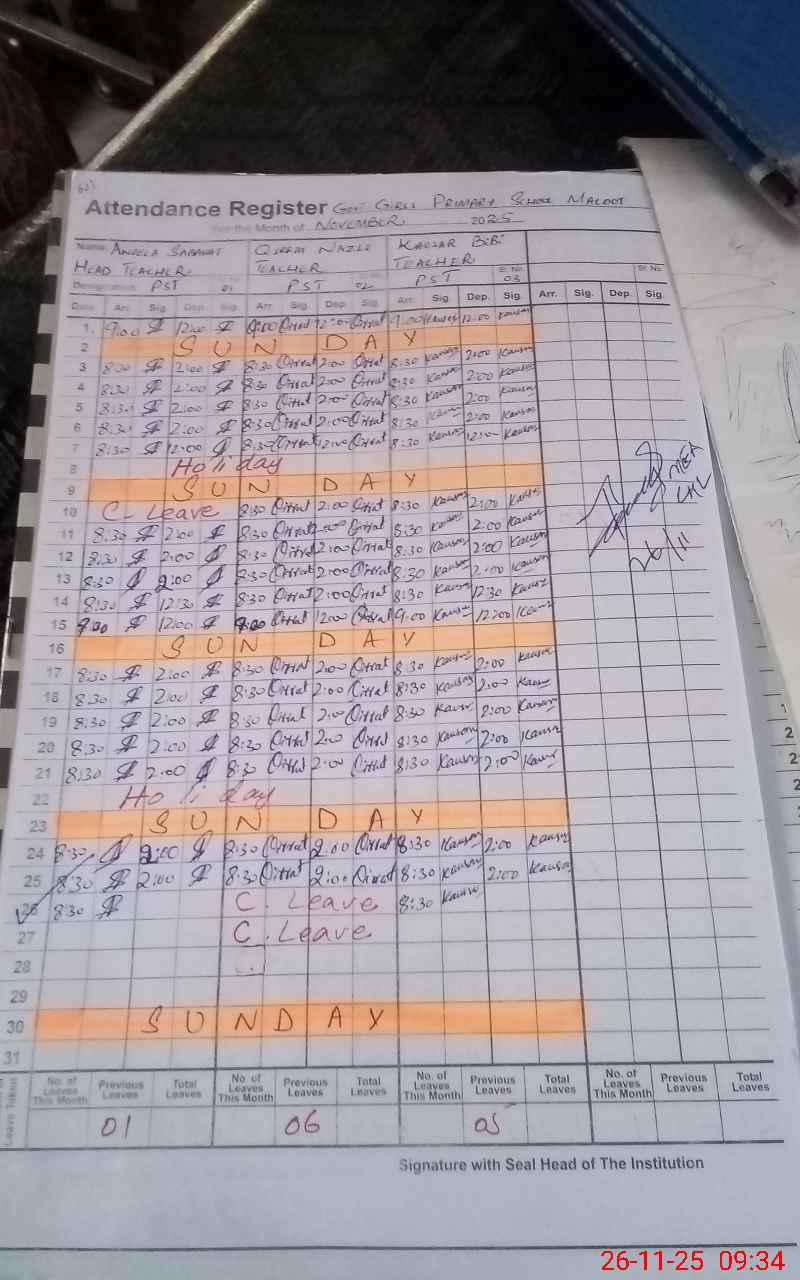 Attendance Register GOVT GIRLS PRIMARY SCHOOL MALOOT
For the Month of NOVEMBER 2025
Name ANEELA SABAHAT QIRRAT NAZLI KAUSAR BIBI
HEAD TEACHER TEACHER TEACHER Sr. No.
Designation PST 01 PST 02 PST 03
Date Arr. Sig. Dep. Sig. Arr. Sig. Dep. Sig. Arr. Sig. Dep. Sig. Arr. Sig. Dep. Sig.
1. 9:00 12:00 9:00 Qirrat 12:00 Qirrat 9:00 Kausar 12:00 Kausar
2 SUNDAY
3 8:30 2:00 8:30 Qirrat 2:00 Qirrat 8:30 Kausar 2:00 Kausar
4 8:30 2:00 8:30 Qirrat 2:00 Qirrat 8:30 Kausar 2:00 Kausar
5 8:30 2:00 8:30 Qirrat 2:00 Qirrat 8:30 Kausar 2:00 Kausar
6 8:30 2:00 8:30 Qirrat 2:00 Qirrat 8:30 Kausar 2:00 Kausar
7 8:30 12:00 8:30 Qirrat 12:00 Qirrat 8:30 Kausar 12:00 Kausar
8 Holiday
9 SUNDAY
10 C-Leave 8:30 Qirrat 2:00 Qirrat 8:30 Kausar 2:00 Kausar
11 8:30 2:00 8:30 Qirrat 2:00 Qirrat 8:30 Kausar 2:00 Kausar
12 8:30 2:00 8:30 Qirrat 2:00 Qirrat 8:30 Kausar 2:00 Kausar
13 8:30 2:00 8:30 Qirrat 2:00 Qirrat 8:30 Kausar 2:00 Kausar
14 8:30 12:30 8:30 Qirrat 2:00 Qirrat 8:30 Kausar 12:30 Kausar
15 9:00 12:00 9:00 Qirrat 12:00 Qirrat 9:00 Kausar 12:00 Kausar
16 SUNDAY
17 8:30 2:00 8:30 Qirrat 2:00 Qirrat 8:30 Kausar 2:00 Kausar
18 8:30 2:00 8:30 Qirrat 2:00 Qirrat 8:30 Kausar 2:00 Kausar
19 8:30 2:00 8:30 Qirrat 2:00 Qirrat 8:30 Kausar 2:00 Kausar
20 8:30 2:00 8:30 Qirrat 2:00 Qirrat 8:30 Kausar 2:00 Kausar
21 8:30 2:00 8:30 Qirrat 2:00 Qirrat 8:30 Kausar 2:00 Kausar
22 Holiday
23 SUNDAY
24 8:30 2:00 8:30 Qirrat 2:00 Qirrat 8:30 Kausar 2:00 Kausar
25 8:30 2:00 8:30 Qirrat 2:00 Qirrat 8:30 Kausar 2:00 Kausar
26 8:30 C. Leave 8:30 Kausar
27 C. Leave
28 C.
29
30 SUNDAY
31
26/11
Leave Taken
No. of Leaves This Month Previous Leaves Total Leaves No. of Leaves This Month Previous Leaves Total Leaves No. of Leaves This Month Previous Leaves Total Leaves No. of Leaves This Month Previous Leaves Total Leaves
01 06 05
Signature with Seal Head of The Institution
26-11-25 09:34